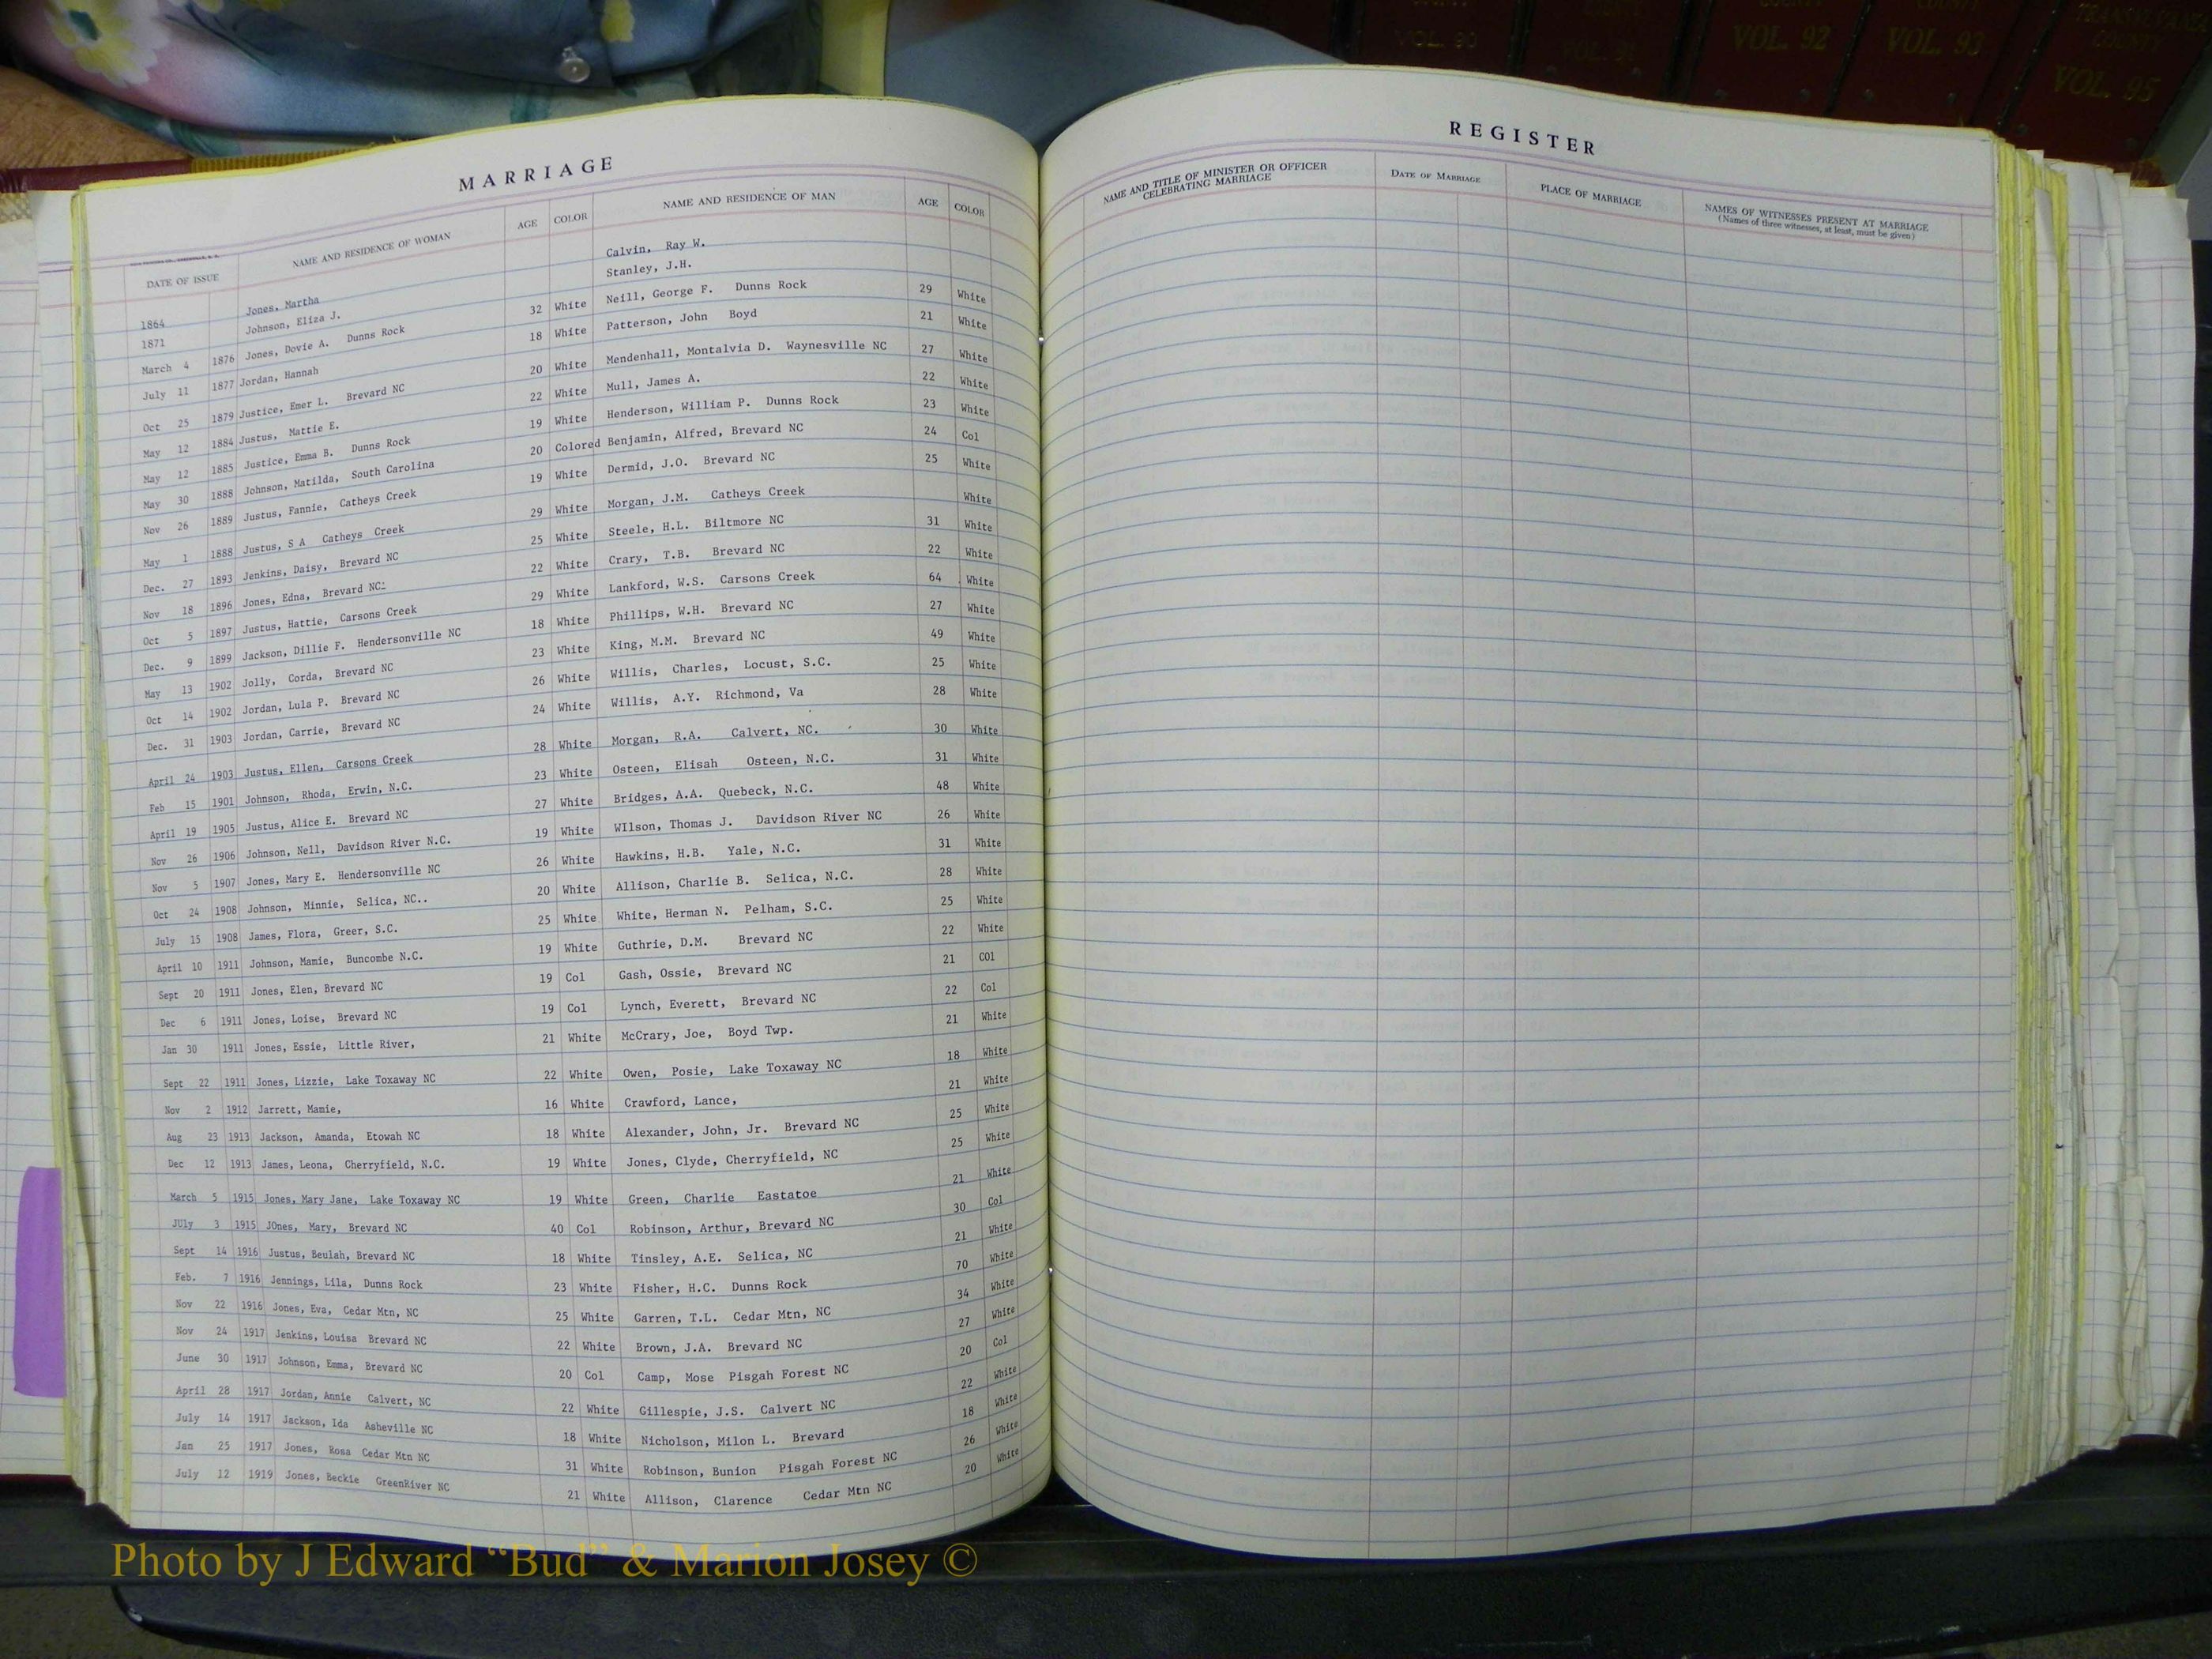 COUNTY VOL. 90
COUNTY VOL. 91
COUNTY VOL. 92
COUNTY VOL. 93
TRANSYLVANIA COUNTY VOL. 95
MARRIAGE
DATE OF ISSUE NAME AND RESIDENCE OF WOMAN AGE COLOR NAME AND RESIDENCE OF MAN AGE COLOR
1864 Jones, Martha Calvin, Ray W.
1871 Johnson, Eliza J. Stanley, J.H.
March 4 1876 Jones, Dovie A. Dunns Rock 32 White Neill, George F. Dunns Rock 29 White
July 11 1877 Jordan, Hannah 18 White Patterson, John Boyd 21 White
Oct 25 1879 Justice, Emer L. Brevard NC 20 White Mendenhall, Montalvia D. Waynesville NC 27 White
May 12 1884 Justus, Mattie E. 22 White Mull, James A. 22 White
May 12 1885 Justice, Emma B. Dunns Rock 19 White Henderson, William P. Dunns Rock 23 White
May 30 1888 Johnson, Matilda, South Carolina 20 Colored Benjamin, Alfred, Brevard NC 24 Col
Nov 26 1889 Justus, Fannie, Catheys Creek 19 White Dermid, J.O. Brevard NC 25 White
May 1 1888 Justus, S A Catheys Creek 29 White Morgan, J.M. Catheys Creek White
Dec. 27 1893 Jenkins, Daisy, Brevard NC 25 White Steele, H.L. Biltmore NC 31 White
Nov 18 1896 Jones, Edna, Brevard NC. 22 White Crary, T.B. Brevard NC 22 White
Oct 5 1897 Justus, Hattie, Carsons Creek 29 White Lankford, W.S. Carsons Creek 64 White
Dec. 9 1899 Jackson, Dillie F. Hendersonville NC 18 White Phillips, W.H. Brevard NC 27 White
May 13 1902 Jolly, Corda, Brevard NC 23 White King, M.M. Brevard NC 49 White
Oct 14 1902 Jordan, Lula P. Brevard NC 26 White Willis, Charles, Locust, S.C. 25 White
Dec. 31 1903 Jordan, Carrie, Brevard NC 24 White Willis, A.Y. Richmond, Va 28 White
April 24 1903 Justus, Ellen, Carsons Creek 28 White Morgan, R.A. Calvert, NC. 30 White
Feb 15 1901 Johnson, Rhoda, Erwin, N.C. 23 White Osteen, Elisah Osteen, N.C. 31 White
April 19 1905 Justus, Alice E. Brevard NC 27 White Bridges, A.A. Quebeck, N.C. 48 White
Nov 26 1906 Johnson, Nell, Davidson River N.C. 19 White WIlson, Thomas J. Davidson River NC 26 White
Nov 5 1907 Jones, Mary E. Hendersonville NC 26 White Hawkins, H.B. Yale, N.C. 31 White
Oct 24 1908 Johnson, Minnie, Selica, NC.. 20 White Allison, Charlie B. Selica, N.C. 28 White
July 15 1908 James, Flora, Greer, S.C. 25 White White, Herman N. Pelham, S.C. 25 White
April 10 1911 Johnson, Mamie, Buncombe N.C. 19 White Guthrie, D.M. Brevard NC 22 White
Sept 20 1911 Jones, Elen, Brevard NC 19 Col Gash, Ossie, Brevard NC 21 COl
Dec 6 1911 Jones, Loise, Brevard NC 19 Col Lynch, Everett, Brevard NC 22 Col
Jan 30 1911 Jones, Essie, Little River, 21 White McCrary, Joe, Boyd Twp. 21 White
Sept 22 1911 Jones, Lizzie, Lake Toxaway NC 22 White Owen, Posie, Lake Toxaway NC 18 White
Nov 2 1912 Jarrett, Mamie, 16 White Crawford, Lance, 21 White
Aug 23 1913 Jackson, Amanda, Etowah NC 18 White Alexander, John, Jr. Brevard NC 25 White
Dec 12 1913 James, Leona, Cherryfield, N.C. 19 White Jones, Clyde, Cherryfield, NC 25 White
March 5 1915 Jones, Mary Jane, Lake Toxaway NC 19 White Green, Charlie Eastatoe 21 White
JUly 3 1915 JOnes, Mary, Brevard NC 40 Col Robinson, Arthur, Brevard NC 30 Col
Sept 14 1916 Justus, Beulah, Brevard NC 18 White Tinsley, A.E. Selica, NC 21 White
Feb. 7 1916 Jennings, Lila, Dunns Rock 23 White Fisher, H.C. Dunns Rock 70 White
Nov 22 1916 Jones, Eva, Cedar Mtn, NC 25 White Garren, T.L. Cedar Mtn, NC 34 White
Nov 24 1917 Jenkins, Louisa Brevard NC 22 White Brown, J.A. Brevard NC 27 White
June 30 1917 Johnson, Emma, Brevard NC 20 Col Camp, Mose Pisgah Forest NC 20 Col
April 28 1917 Jordan, Annie Calvert, NC 22 White Gillespie, J.S. Calvert NC 22 White
July 14 1917 Jackson, Ida Asheville NC 18 White Nicholson, Milon L. Brevard 18 White
Jan 25 1917 Jones, Rosa Cedar Mtn NC 31 White Robinson, Bunion Pisgah Forest NC 26 White
July 12 1919 Jones, Beckie GreenRiver NC 21 White Allison, Clarence Cedar Mtn NC 20 White
REGISTER
NAME AND TITLE OF MINISTER OR OFFICER CELEBRATING MARRIAGE DATE OF MARRIAGE PLACE OF MARRIAGE NAMES OF WITNESSES PRESENT AT MARRIAGE
(Names of three witnesses, at least, must be given)
Photo by J Edward “Bud” & Marion Josey ©